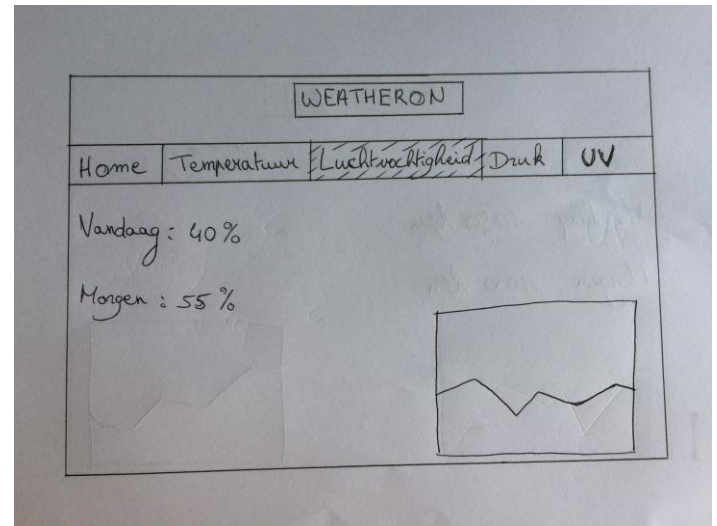 WEATHERON
Home Temperatuur Luchtvochtigheid Druk UV
Vandaag: 40%
Morgen: 55%